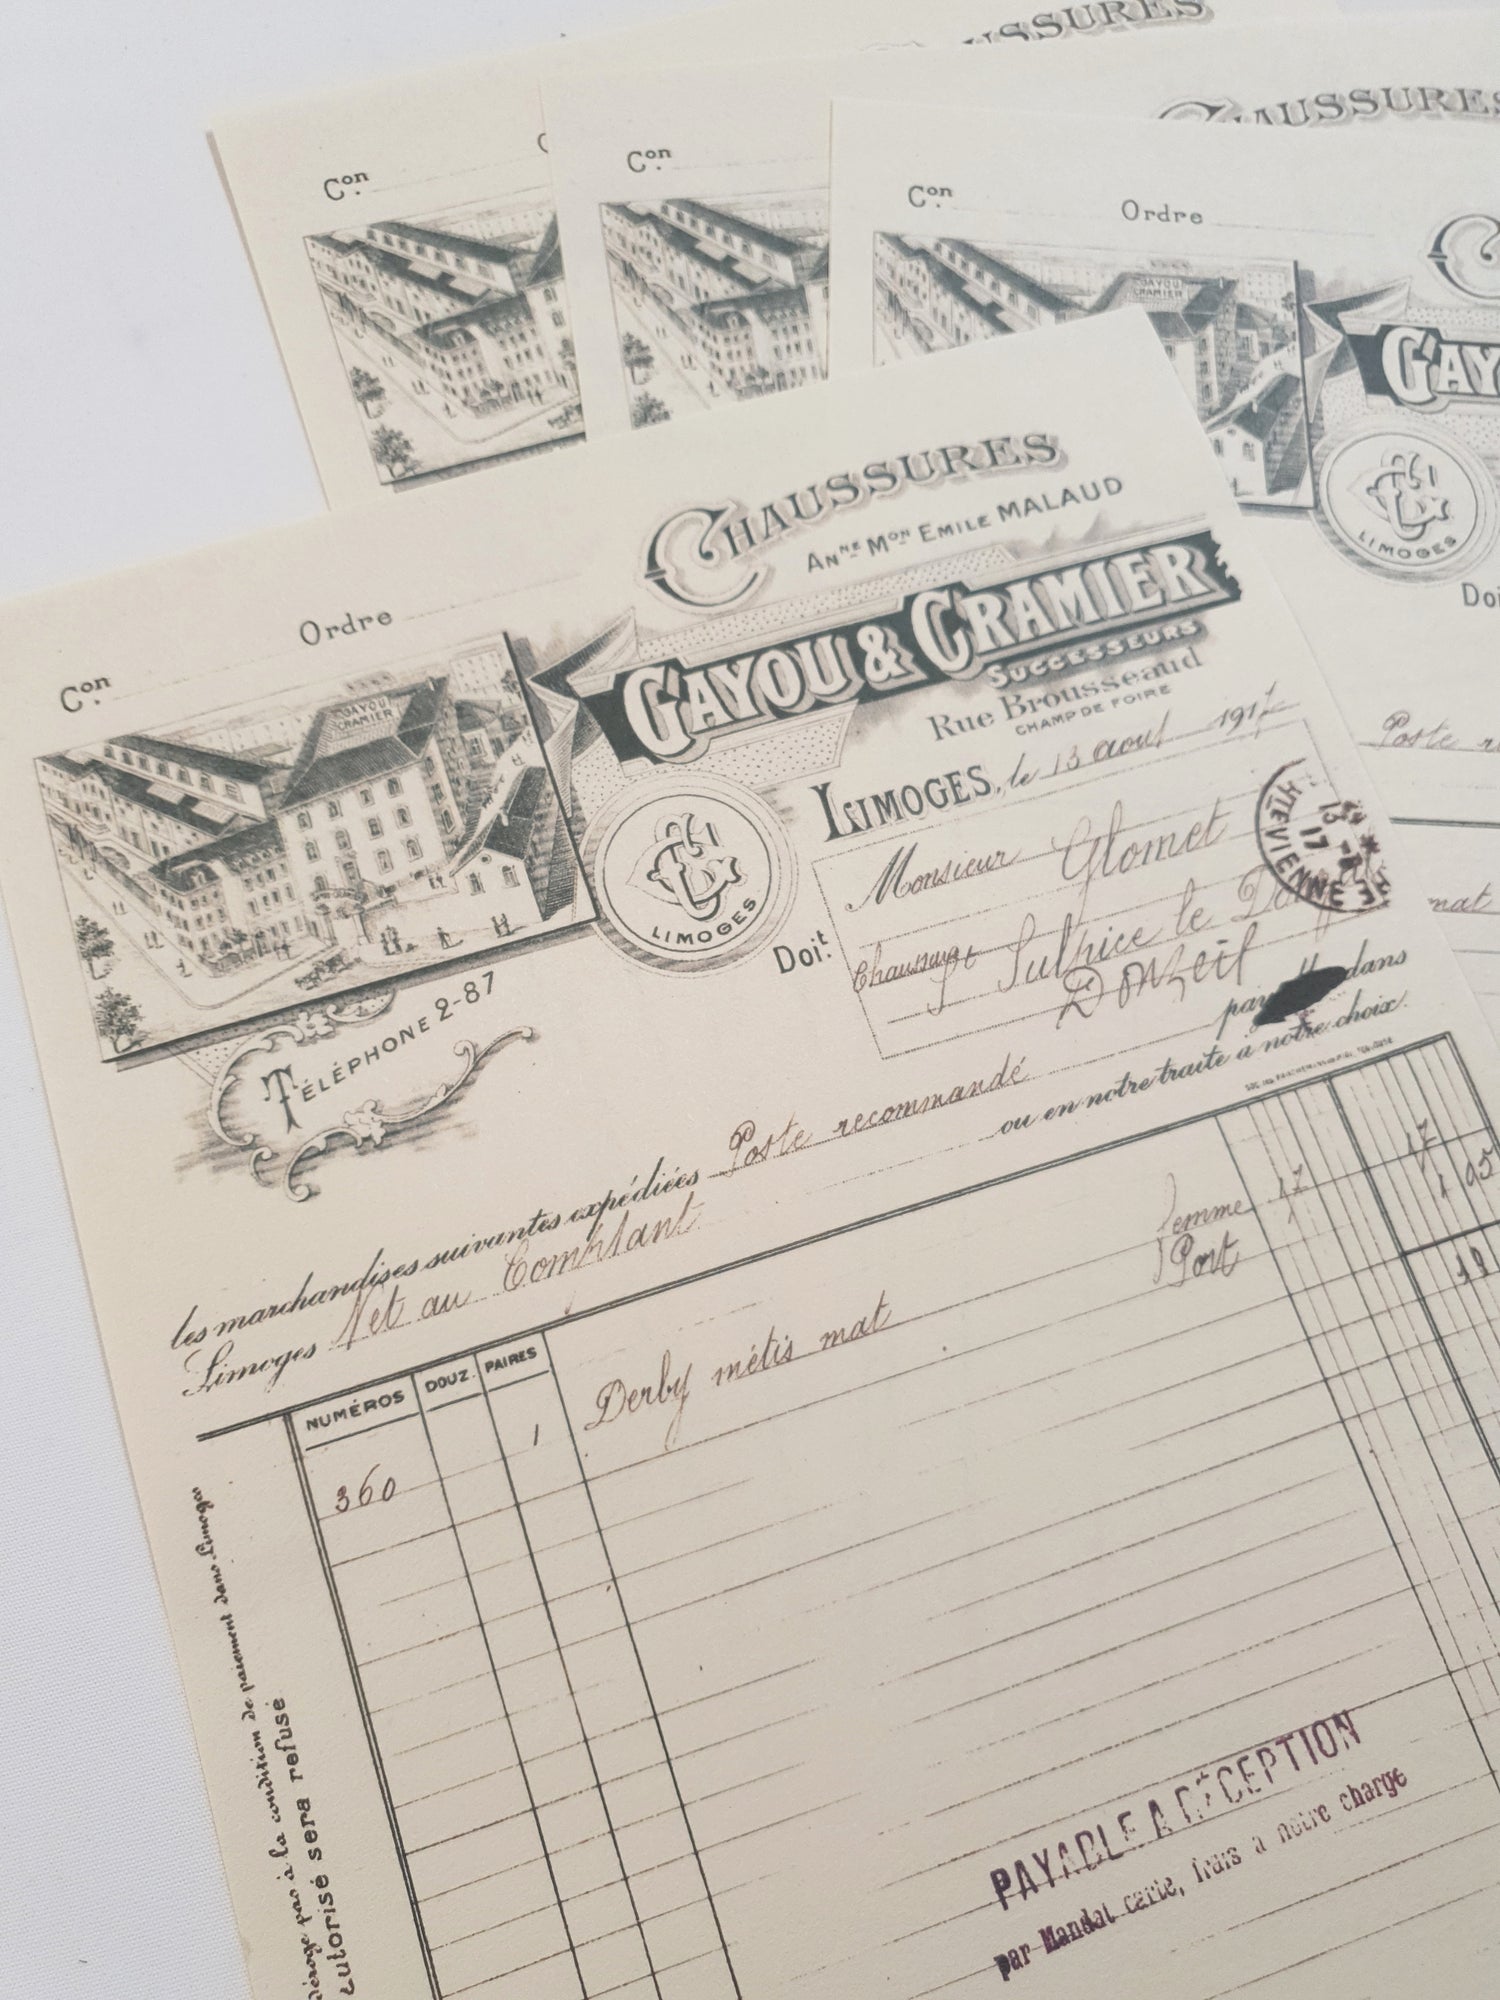 CHAUSSURES
CHAUSSURES
Con
Con
Con Ordre
GAYOU
CRAMIER
LIMOGES
Poste
mat
CHAUSSURES
Anne Mon EMILE MALAUD
GAYOU & CRAMIER
SUCCESSEURS
Rue Brousseaud
CHAMP DE FOIRE
Con Ordre
GAYOU
CRAMIER
LIMOGES
TÉLÉPHONE 2-87
LIMOGES, le 13 aout 1917
Monsieur Glomet
Chaussures
St Sulpice le
Donzeil
Doit
HTE VIENNE
13
17
les marchandises suivantes expédiées Poste recommandé dans
Limoges Net au Comptant ou en notre traite à notre choix.
NUMÉROS DOUZ. PAIRES
360 1 Derby métis mat femme 17 17
Port 1 05
18
déroge pas à la condition de paiement dans Limoges
autorisé sera refusé
PAYABLE A RÉCEPTION
par Mandat carte, frais a notre charge